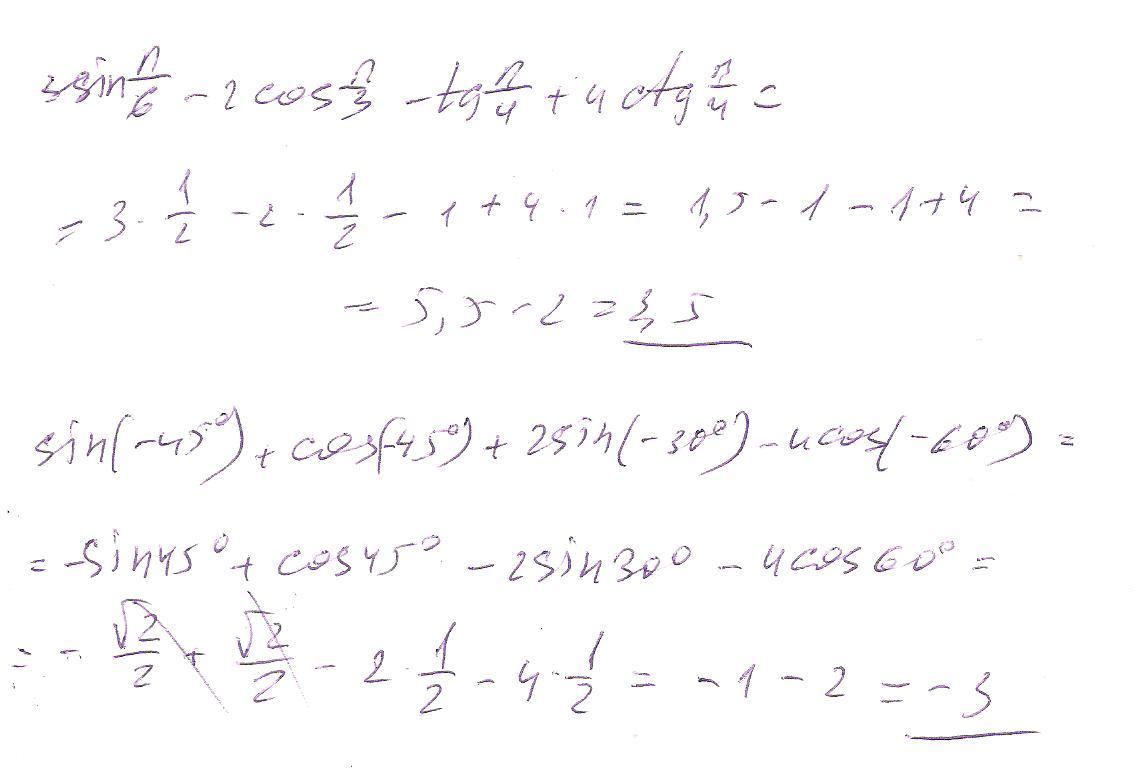 3sin π/6 - 2cos π/3 - tg π/4 + 4 ctg π/4 =
= 3 · 1/2 - 2 · 1/2 - 1 + 4 · 1 = 1,5 - 1 - 1 + 4 =
= 5,5 - 2 = 3,5
sin(-45°) + cos(-45°) + 2sin(-30°) - 4cos(-60°) =
= -sin45° + cos45° - 2sin30° - 4cos60° =
= - √2/2 + √2/2 - 2 · 1/2 - 4 · 1/2 = -1 - 2 = -3